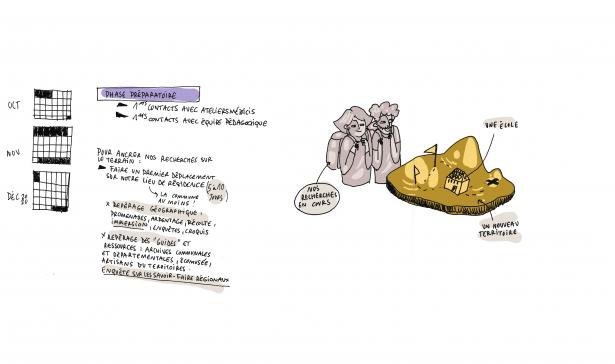 OCT
NOV.
DÉC 20
PHASE PRÉPARATOIRE
1ERS CONTACTS AVEC ATELIERS MÉDICIS
1ERS CONTACTS AVEC ÉQUIPE PÉDAGOGIQUE
POUR ANCRER NOS RECHERCHES SUR
LE TERRAIN :
FAIRE UN PREMIER DÉPLACEMENT
SUR NOTRE LIEU DE RÉSIDENCE (5 à 10
JOURS)
↳ LA COMMUNE
AU MOINS !
X REPÉRAGE GÉOGRAPHIQUE :
PROMENADES, ARPENTAGE, RÉCOLTE,
IMMERSION, ENQUÊTES, CROQUIS
X REPÉRAGE DES "GUIDES" ET
RESSOURCES : ARCHIVES COMMUNALES
ET DÉPARTEMENTALES, ÉCOMUSÉE,
ARTISANS DU TERRITOIRES.
ENQUÊTE SUR LES SAVOIR-FAIRE RÉGIONAUX
NOS
RECHERCHES
EN COURS
UNE ÉCOLE
UN NOUVEAU
TERRITOIRE